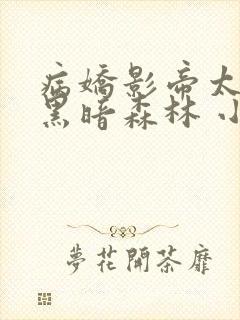 病嬌影帝太
黑暗森林 小
夢花開荼靡